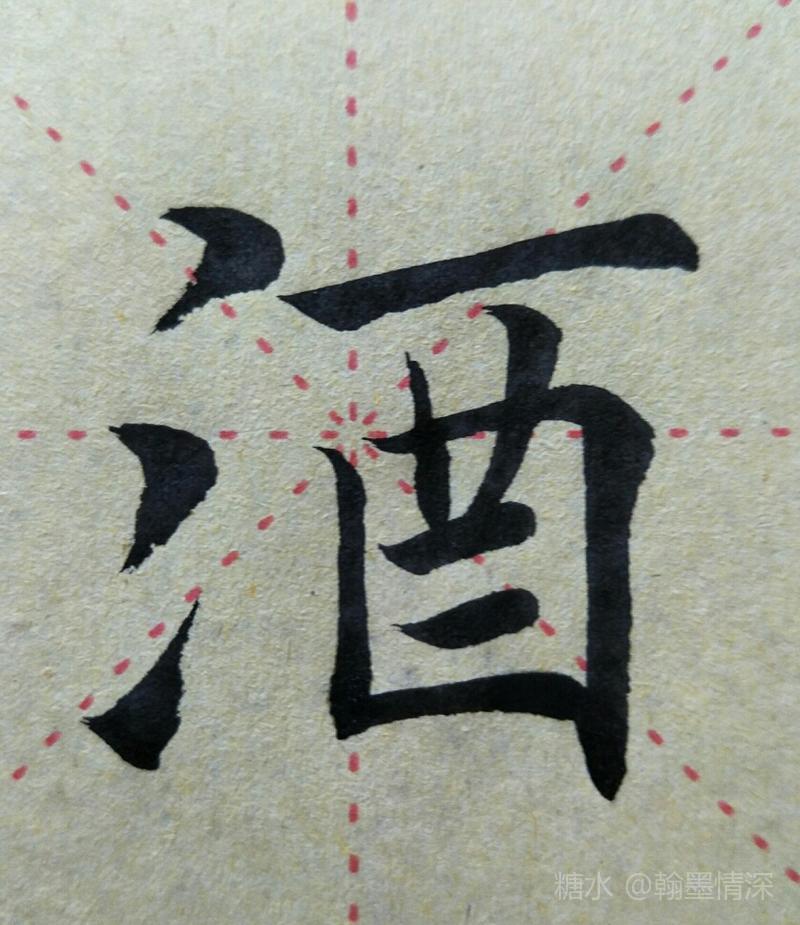 酒
糖水 @翰墨情深